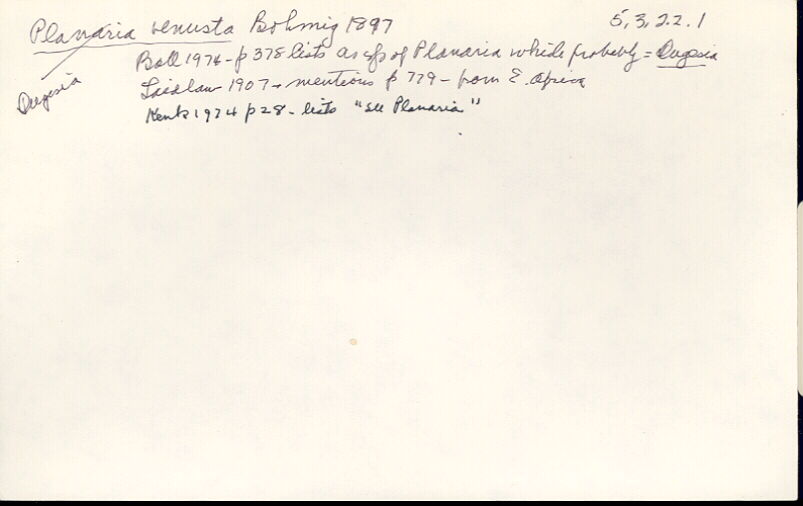 Planaria venusta Bohmig 1897 5,3,2.2.1
Dugesia
Ball 1974 - p 378 lists as sp of Planaria which probably = Dugesia
Laidlaw 1907 - mentions p 779 - from E. Africa
Kenk 1974 p 28 - lists "see Planaria"